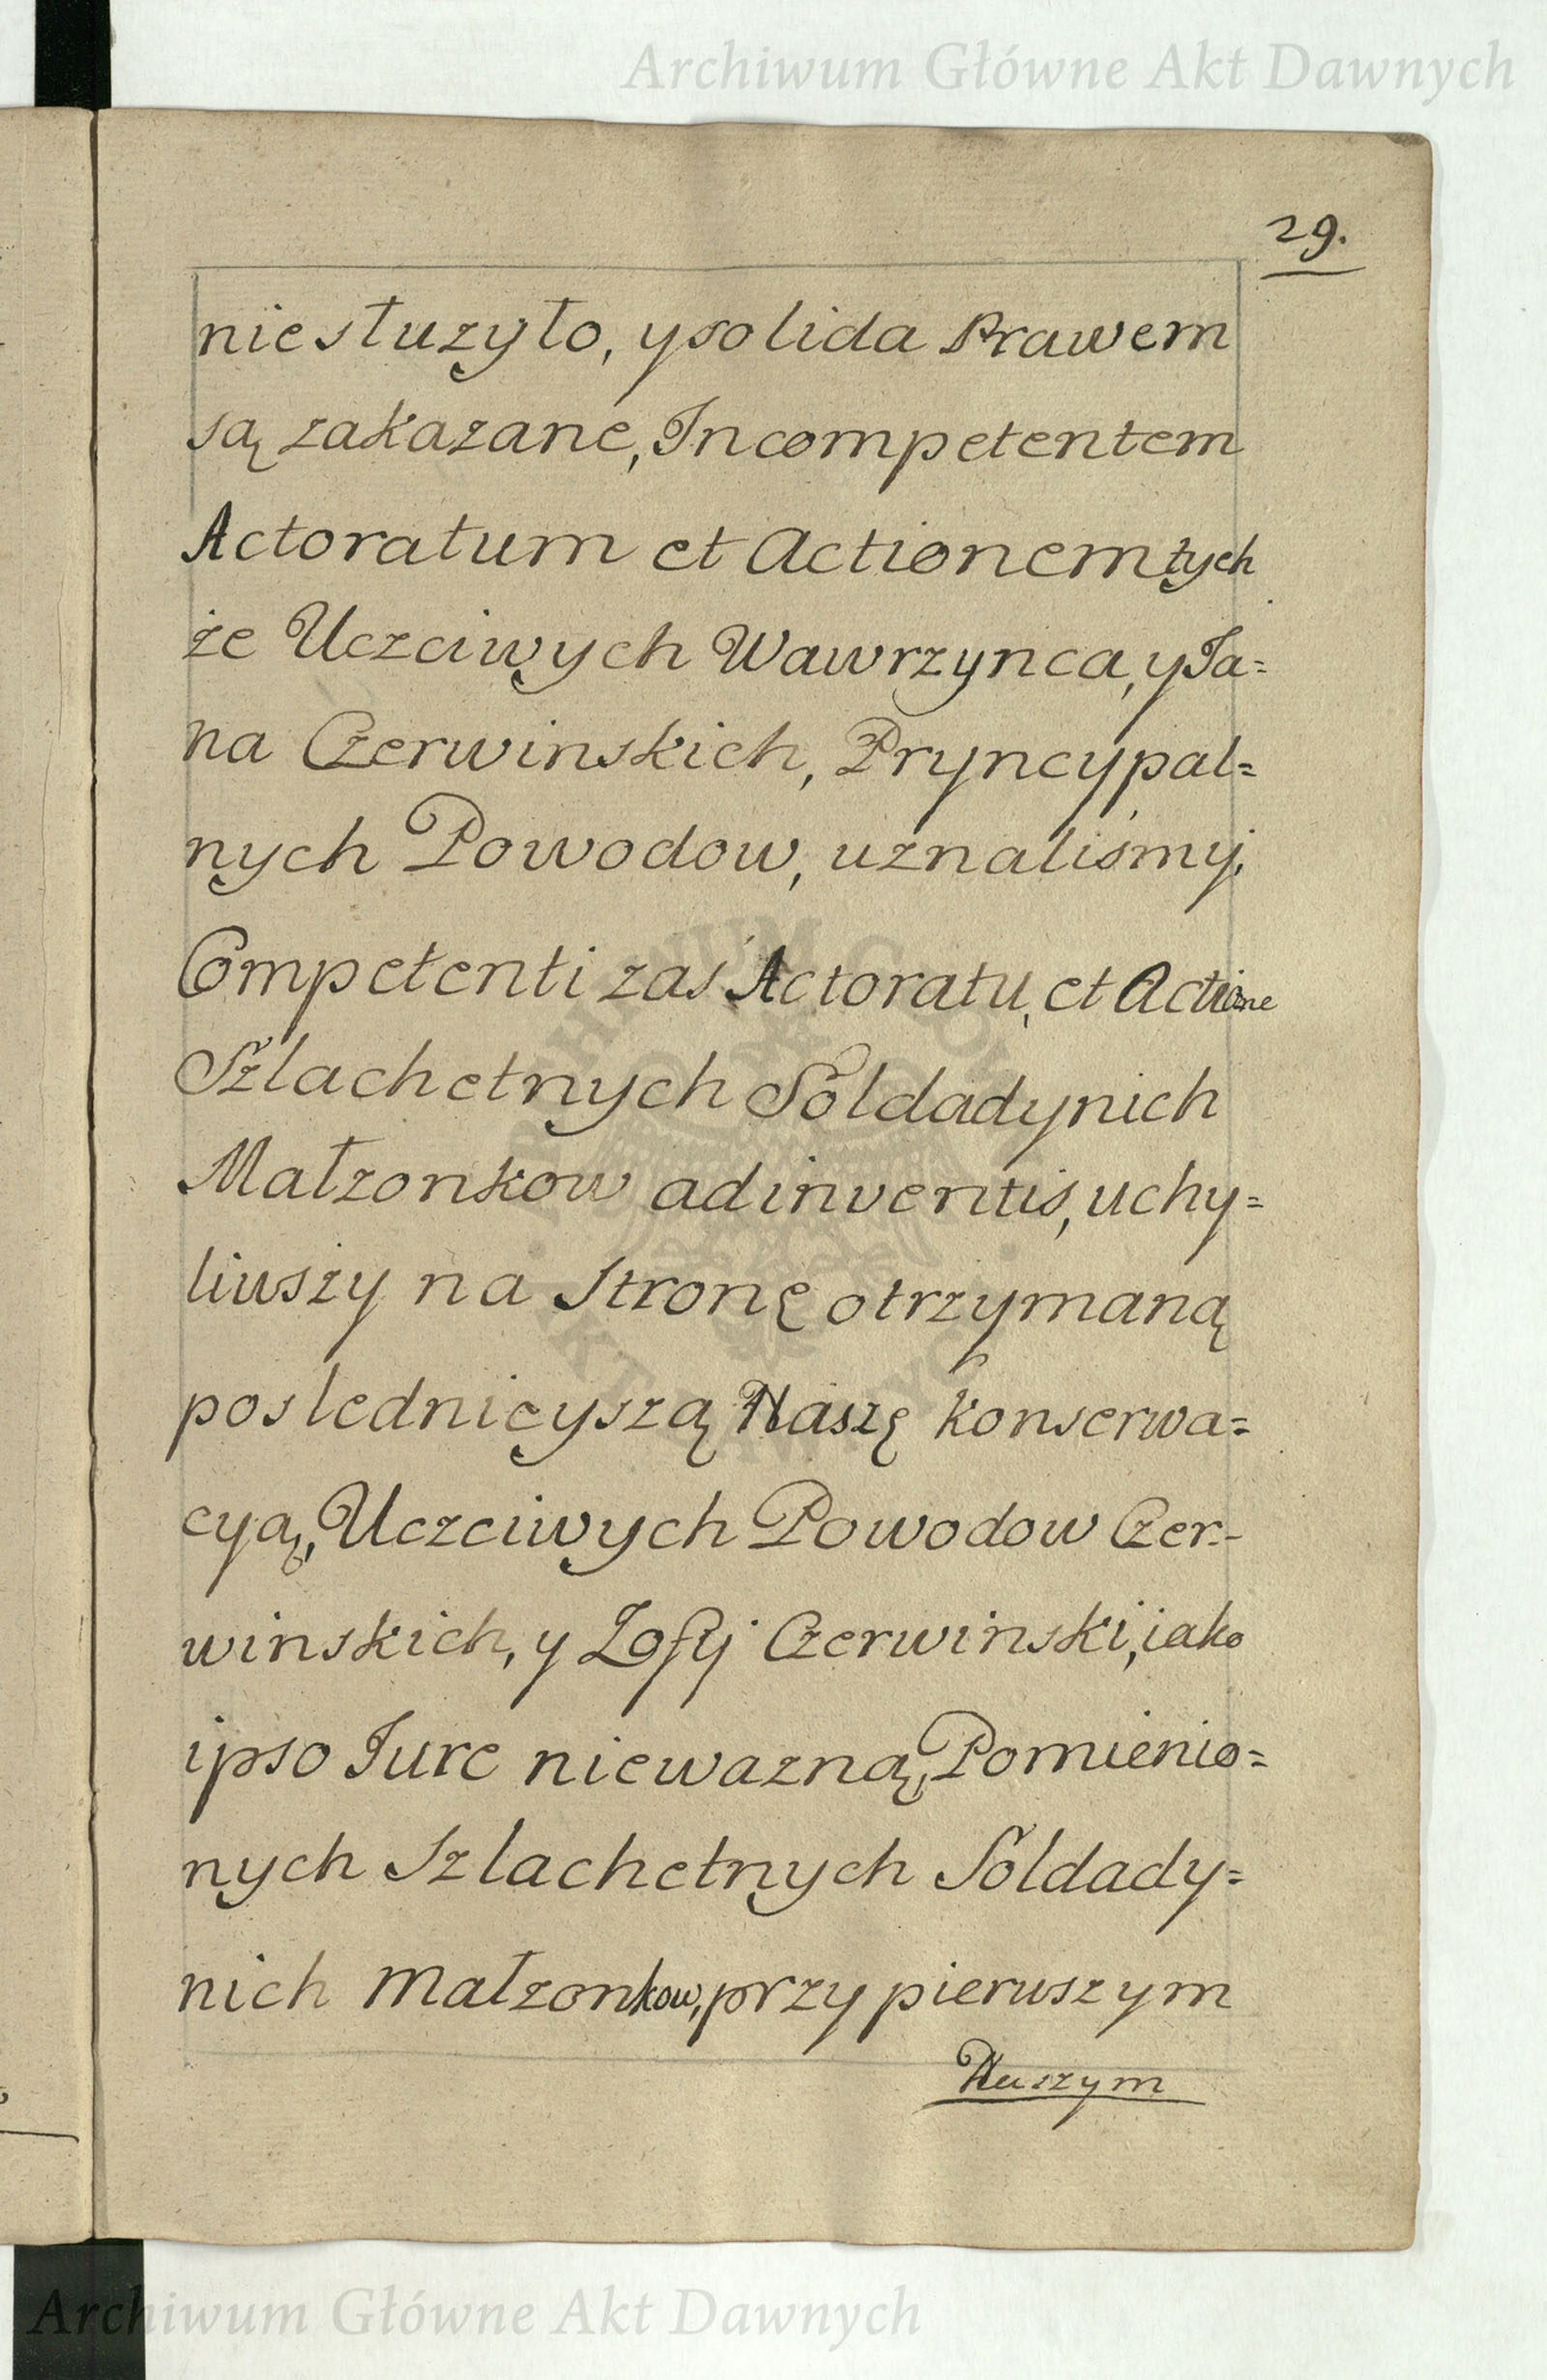 Archiwum Główne Akt Dawnych
29.
niesłuzyło, y solida Prawem
są zakazane, Incompetentem
Actoratum et Actionem tych
że Uczciwych Wawrzynca, y Ja=
na Czerwinskich, Pryncypal=
nych Powodow, uznaliśmy,
Competenti zaś Actoratu, et Actione
Szlachetnych Soldadynich
Małzonkow adinventis, uchy=
liwszy na Stronę otrzymaną
poslednięyszą Naszę konserwa=
cyą, Uczciwych Powodow Czer=
winskich, y Zofij Czerwinski, iako
ipso Jure niewazną, Pomienio=
nych Szlachetnych Soldady=
nich Małzonkow, przy pierwszym
Naszym
Archiwum Główne Akt Dawnych